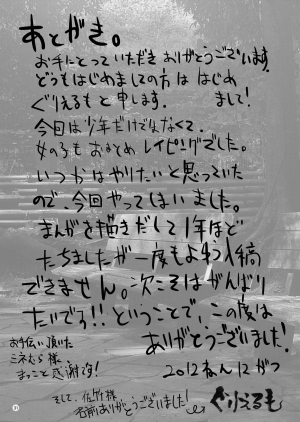 あとがき。
お手にとっていただきありがとうございます。
どうもはじめましての方ははじめ
まして!
ぐりえるもと申します.
今回は少年だけでなくて、
女の子もおまとめレイピングでした。
いつかはやりたいと思っていた
ので、今回やってしまいました。
まんがを描きだして1年ほど
たちましたが一度もよゆう入稿
できません。次こそはがんばり
たいでろ!!ということで、この度は
ありがとうございました!
お手伝い頂いた
ミネむら様、
まっこと感謝です!
2012ねん12がつ
そして、佐竹様、
名前ありがとうございました!
ぐりえるも
31